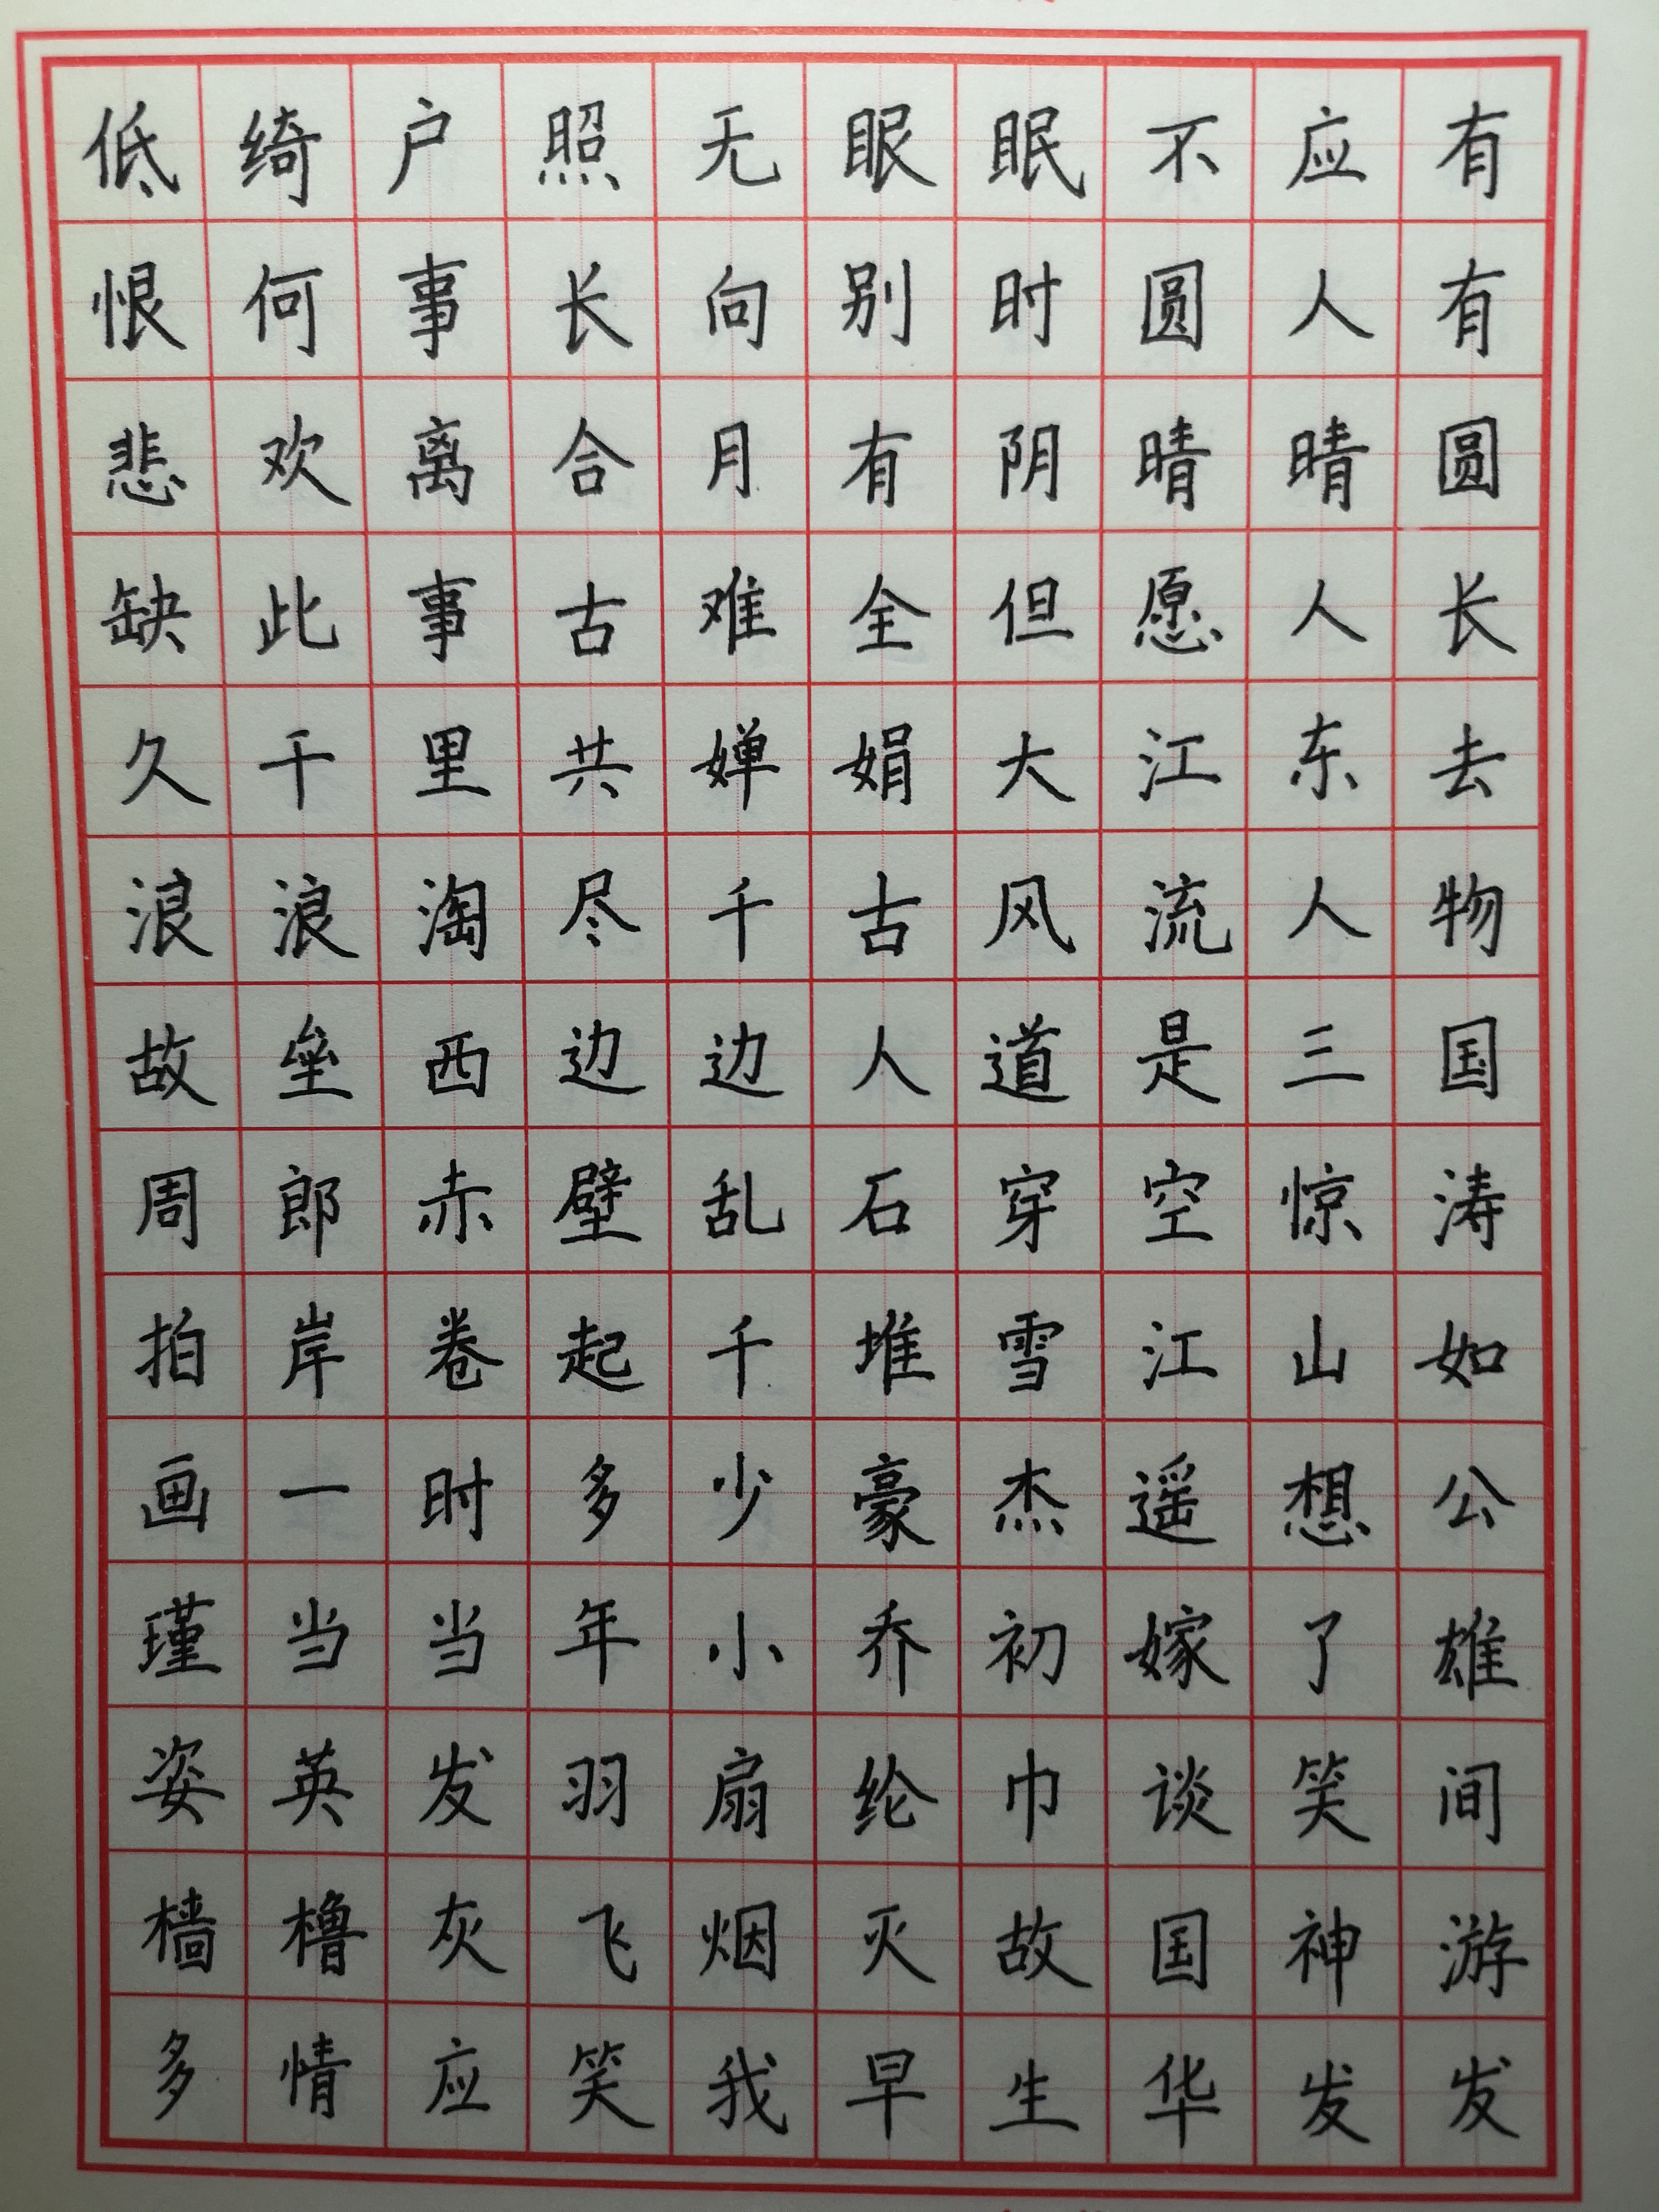 低绮户照无眼眠不应有
恨何事长向别时圆人有
悲欢离合月有阴晴晴圆
缺此事古难全但愿人长
久千里共婵娟大江东去
浪浪淘尽千古风流人物
故垒西边边人道是三国
周郎赤壁乱石穿空惊涛
拍岸卷起千堆雪江山如
画一时多少豪杰遥想公
瑾当当年小乔初嫁了雄
姿英发羽扇纶巾谈笑间
樯橹灰飞烟灭故国神游
多情应笑我早生华发发